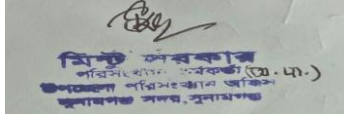 মিন্টু সরকার
পরিসংখ্যান কর্মকর্তা (ভা. প্রা.)
উপজেলা পরিসংখ্যান অফিস
সুনামগঞ্জ সদর, সুনামগঞ্জ